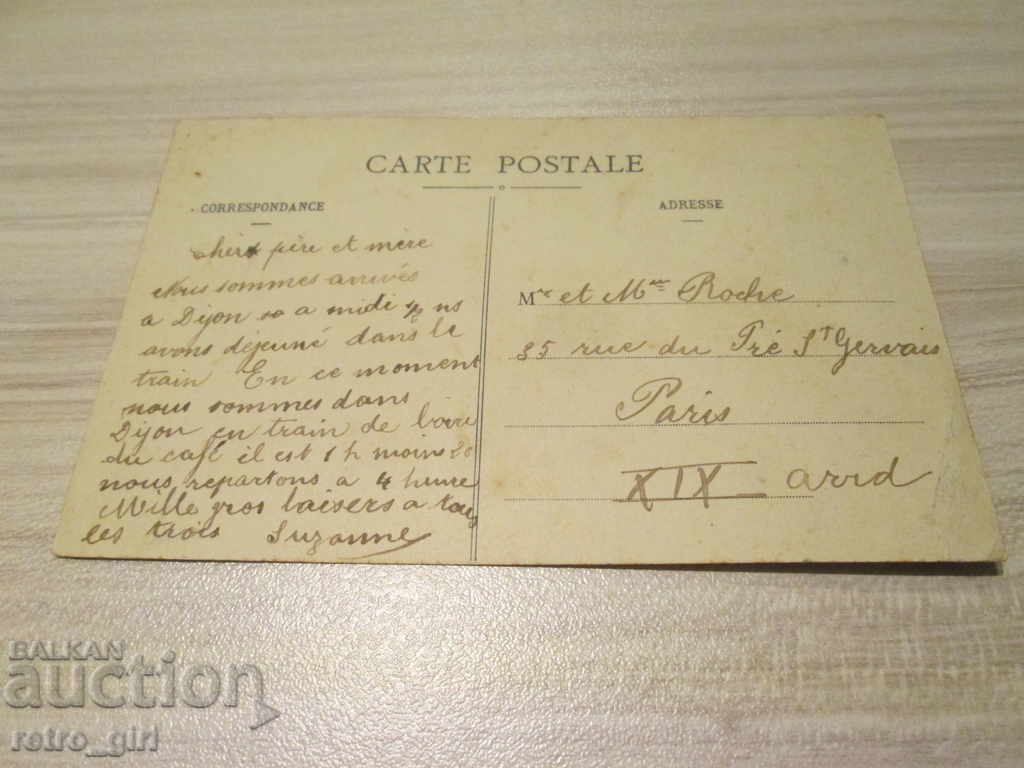 CARTE POSTALE
CORRESPONDANCE
Chers père et mère
Nous sommes arrivés
a Dijon a midi ns
avons déjeuné dans le
train En ce moment
nous sommes dans
Dijon en train de boire
du café il est 1 h moins 20
nous repartons a 4 heure
Mille gros baisers a tous
les trois Suzanne
ADRESSE
Mr et Mme Roche
35 rue du Pré St Gervais
Paris
XIX arrd
BALKAN
auction
retro_girl